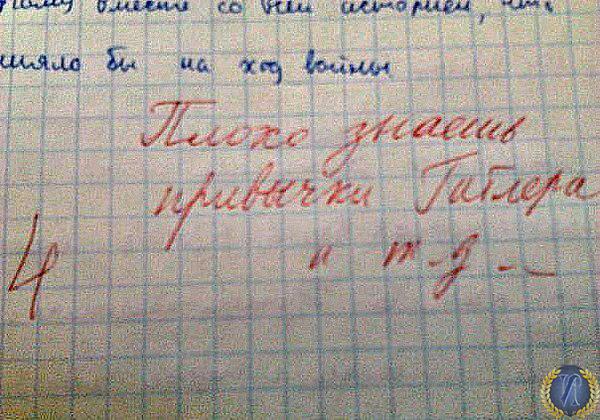 вместе со всей историей, что
бы на ход войны
Плохо знаешь
привычки Гитлера
и т.д.
4